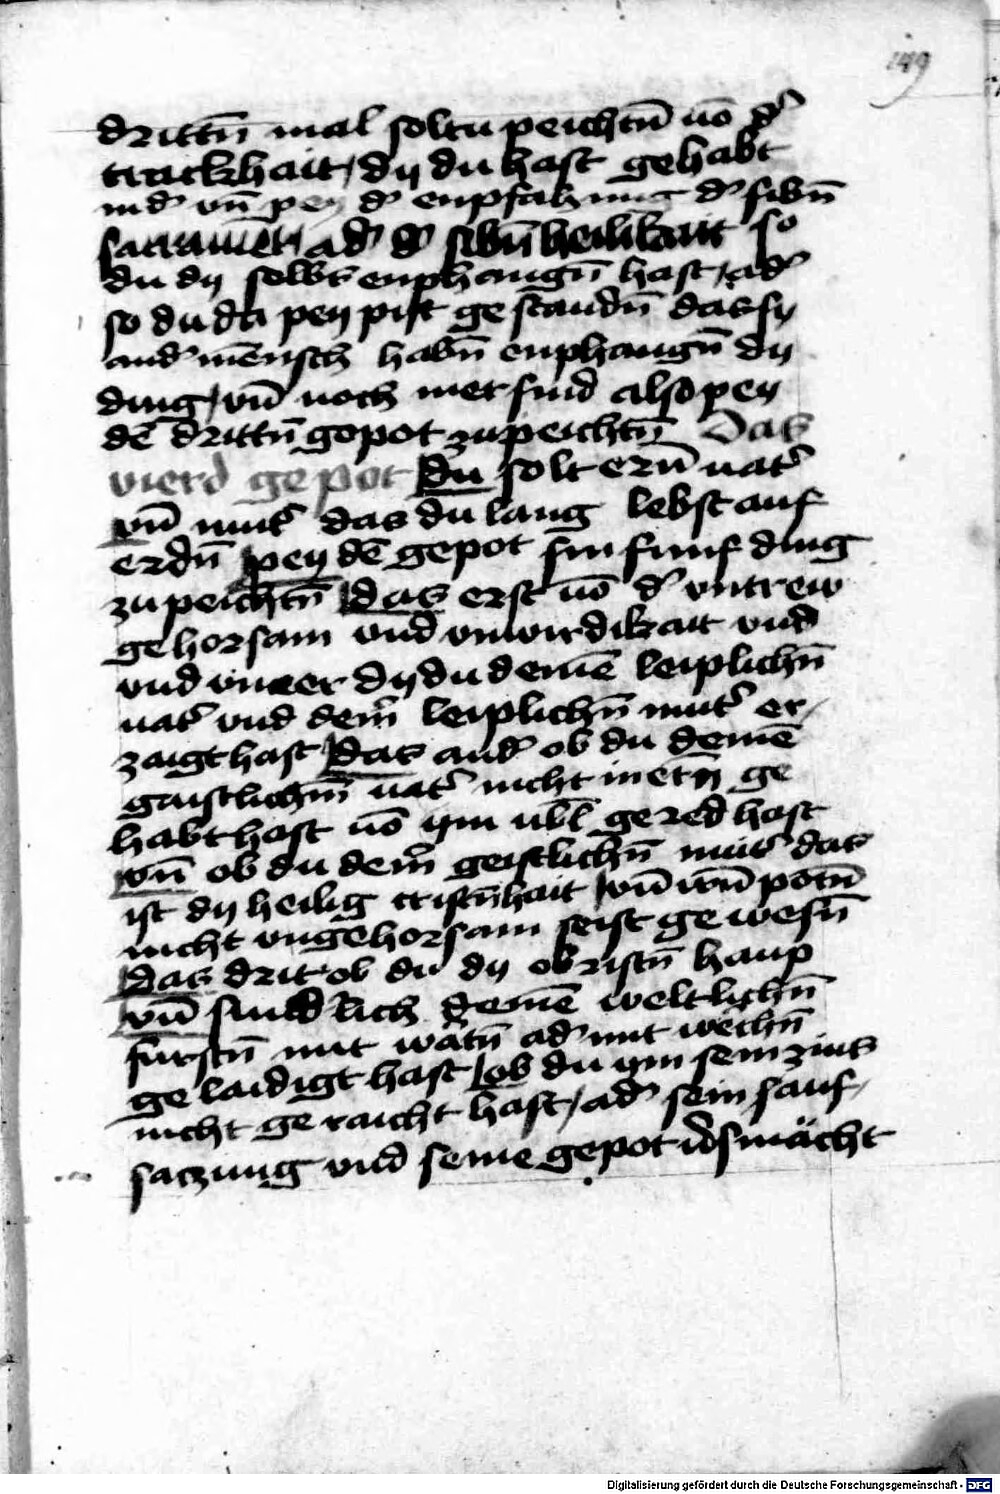 149
drittn̄ mal soltu peichtn̄ vō d᷑
trackhait / dy du hast gehabt
in d᷑ vn̄ pey d᷑ enpfahung d᷑ sibn̄
sacramēt / ad᷑ d᷑ sibn̄ heilikait so
du dy selbs enphangn̄ hast / ad᷑
so du da pey pist gestandn̄ das sy
and᷑ mēnsch habn̄ enphangn̄ dy
ding / vn̄ noch mer sind also pey
dē drittn̄ gepot zu peichtn̄ Das
vierd gepot Du solt ern̄ vat᷑
vn̄ mut᷑ das du lang lebst auf
erdn̄ pey dē gepot sin funf ding
zu peichtn̄ Das erst vō d᷑ vntrew
gehorsam vnd vnwirdikait vnd
vnd vneer dy du deinē leiplichn̄
vat᷑ vnd dein᷑ leiplichn̄ mut᷑ er/
zaigt hast Das and᷑ ob du deinē
gaistlichn̄ vat᷑ nicht in ern̄ ge
habt hast vō ym vbl̄ gered hast
vn̄ ob du dein᷑ geistlichn̄ mut᷑ das
ist dy heilig cristn̄hait / vn̄ irn̄ potn̄
nicht vngehorsam seist gewesn̄
Das drit ob du dy obristn̄ haup
vn̄ sundlich deinē weltlichn̄
furstn̄ mit wartn̄ ad᷑ mit werchn̄
gelaidigt hast / ob du ym sein zins
nicht geraicht hast / ad᷑ sein sauf/
saczung vnd seine gepot v᷑smächt
Digitalisierung gefördert durch die Deutsche Forschungsgemeinschaft - DFG